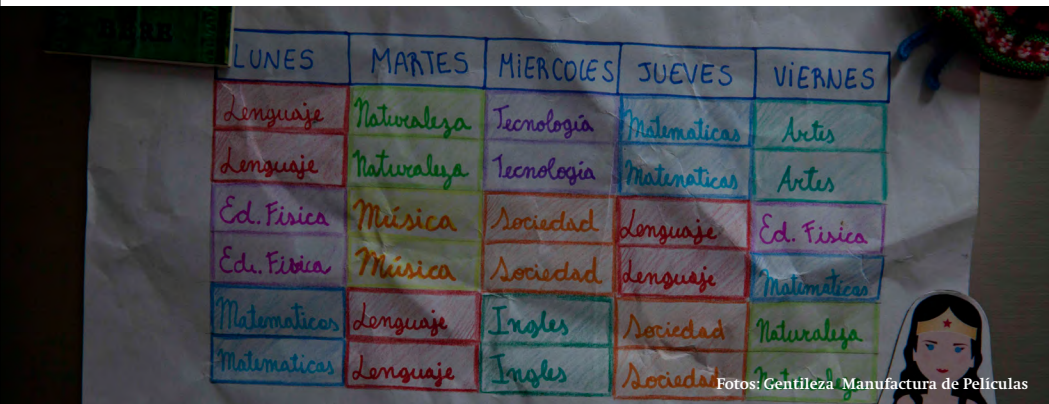 BERE
LUNES MARTES MIERCOLES JUEVES VIERNES
Lenguaje Naturaleza Tecnología Matematicas Artes
Lenguaje Naturaleza Tecnologia Matematicas Artes
Ed. Fisica Música Sociedad Lenguaje Ed. Fisica
Ed. Fisica Música Sociedad Lenguaje Matimaticas
Matematicas Lenguaje Ingles Sociedad Naturaleza
Matematicas Lenguaje Ingles Sociedad Naturaleza
Fotos: Gentileza Manufactura de Películas